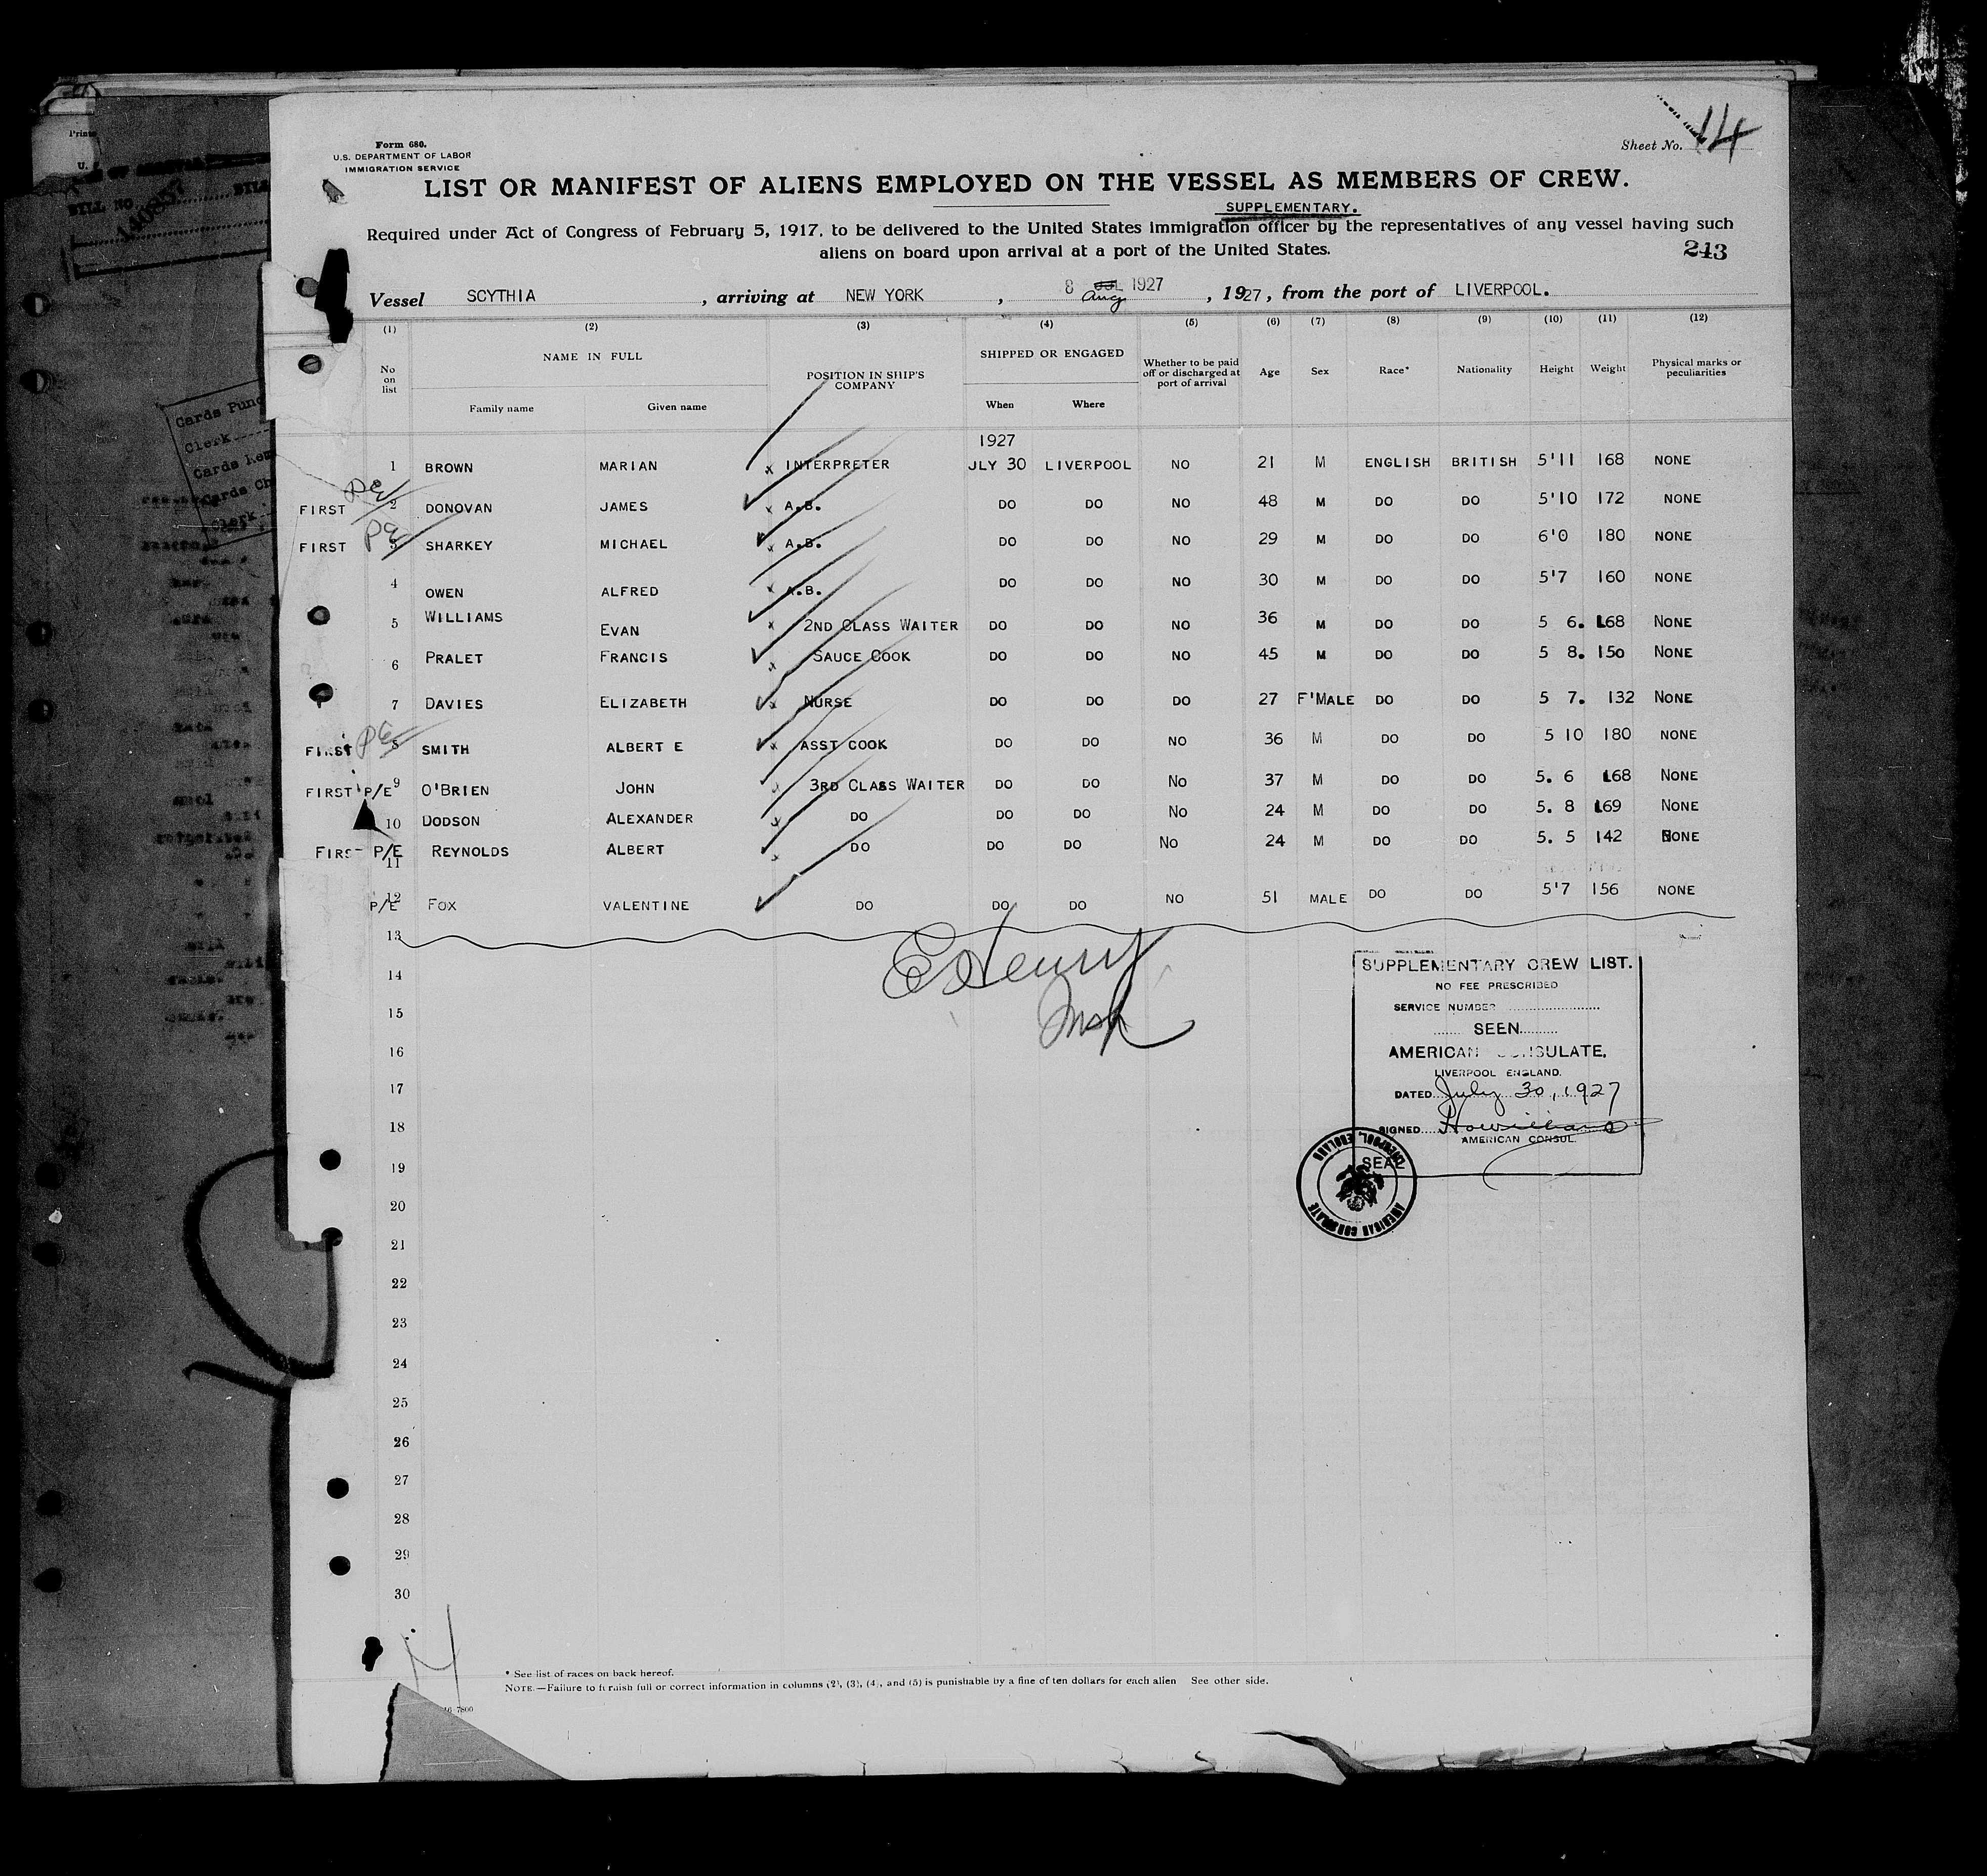 Form 680.
U.S. DEPARTMENT OF LABOR
IMMIGRATION SERVICE
Sheet No. 14
LIST OR MANIFEST OF ALIENS EMPLOYED ON THE VESSEL AS MEMBERS OF CREW.
SUPPLEMENTARY.
Required under Act of Congress of February 5, 1917, to be delivered to the United States immigration officer by the representatives of any vessel having such
aliens on board upon arrival at a port of the United States.
243
Vessel SCYTHIA, arriving at NEW YORK, 8 JUL Aug 1927, 1927, from the port of LIVERPOOL.
(1) (2) (3) (4) (5) (6) (7) (8) (9) (10) (11) (12)
No on list NAME IN FULL Family name Given name POSITION IN SHIP'S COMPANY SHIPPED OR ENGAGED When Where Whether to be paid off or discharged at port of arrival Age Sex Race* Nationality Height Weight Physical marks or peculiarities
1927
1 BROWN MARIAN x INTERPRETER JLY 30 LIVERPOOL NO 21 M ENGLISH BRITISH 5'11 168 NONE
FIRST PE 2 DONOVAN JAMES x A.B. DO DO NO 48 M DO DO 5'10 172 NONE
FIRST PE 3 SHARKEY MICHAEL x A.B. DO DO NO 29 M DO DO 6'0 180 NONE
4 OWEN ALFRED x A.B. DO DO NO 30 M DO DO 5'7 160 NONE
5 WILLIAMS EVAN x 2ND CLASS WAITER DO DO NO 36 M DO DO 5 6. 168 NONE
6 PRALET FRANCIS x SAUCE COOK DO DO NO 45 M DO DO 5 8. 150 NONE
7 DAVIES ELIZABETH x NURSE DO DO DO 27 F'MALE DO DO 5 7. 132 NONE
FIRST PE 8 SMITH ALBERT E x ASST COOK DO DO NO 36 M DO DO 5 10 180 NONE
FIRST P/E 9 O'BRIEN JOHN x 3RD CLASS WAITER DO DO No 37 M DO DO 5. 6 168 NONE
10 DODSON ALEXANDER x DO DO DO No 24 M DO DO 5. 8 169 NONE
FIRST P/E 11 REYNOLDS ALBERT x DO DO DO No 24 M DO DO 5. 5 142 NONE
P/E 12 FOX VALENTINE DO DO DO NO 51 MALE DO DO 5'7 156 NONE
13
14
15
16
17
18
19
20
21
22
23
24
25
26
27
28
29
30
SUPPLEMENTARY CREW LIST.
NO FEE PRESCRIBED
SERVICE NUMBER
SEEN
AMERICAN CONSULATE,
LIVERPOOL ENGLAND.
DATED July 30, 1927
SIGNED
AMERICAN CONSUL.
SEAL
LIVERPOOL, ENGLAND
AMERICAN CONSULATE
* See list of races on back hereof.
NOTE.—Failure to furnish full or correct information in columns (2), (3), (4), and (5) is punishable by a fine of ten dollars for each alien See other side.
7800
BILL NO.
Cards Punc
Clerk
Cards Ch
Clerk